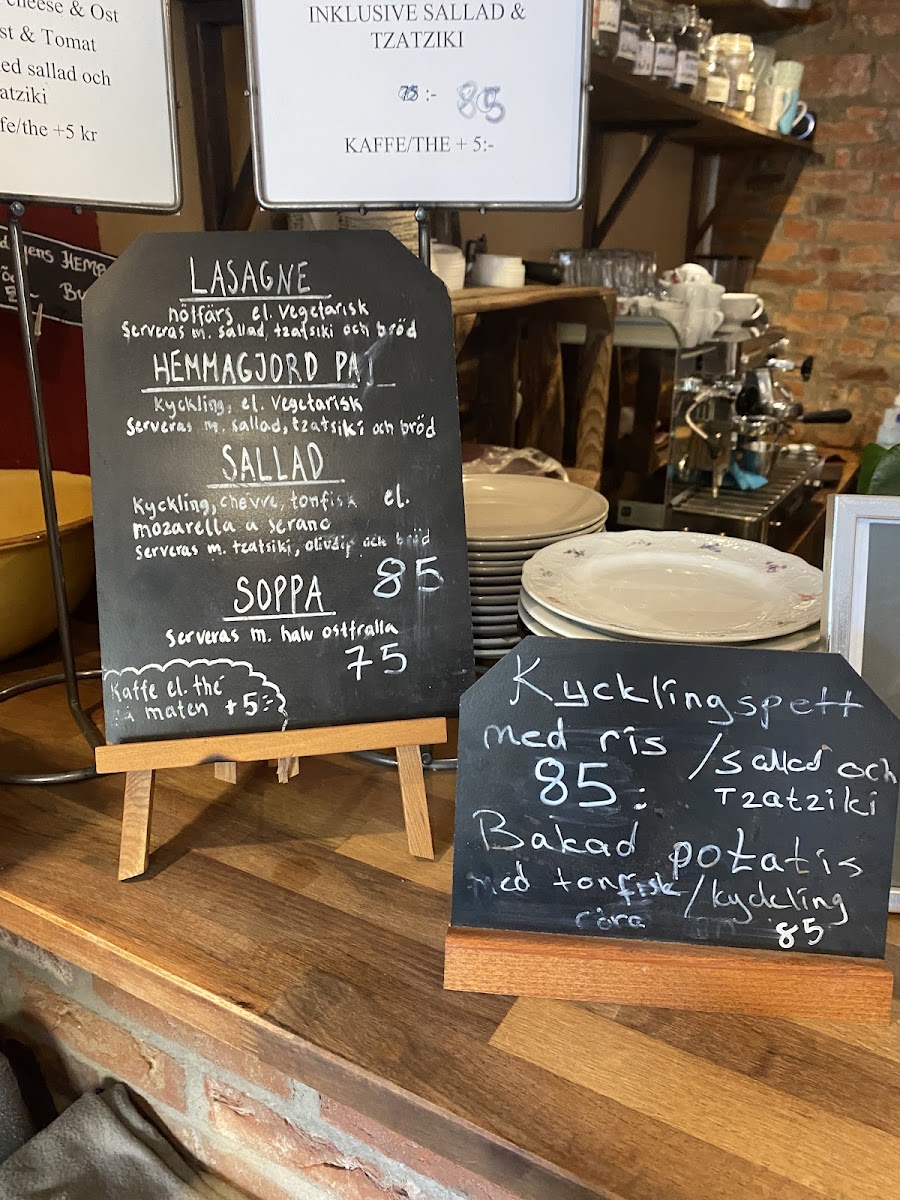 cheese & Ost
st & Tomat
ed sallad och
atziki
fe/the +5 kr
INKLUSIVE SALLAD &
TZATZIKI
75 :- 85
KAFFE/THE + 5:-
LASAGNE
nötfärs el. Vegetarisk
Serveras m. sallad, tzatsiki och bröd
HEMMAGJORD PAJ
Kyckling, el. Vegetarisk
Serveras m. sallad, tzatsiki och bröd
SALLAD
Kyckling, chevre, tonfisk el.
mozarella & serano
Serveras m. tzatsiki, olivdip och bröd
85
SOPPA
Serveras m. halv ostfralla
75
Kaffe el. thé
maten +5:-
Kycklingspett
med ris /Sallad och
85: Tzatziki
Bakad potatis
med tonfisk/kyckling
röra 85